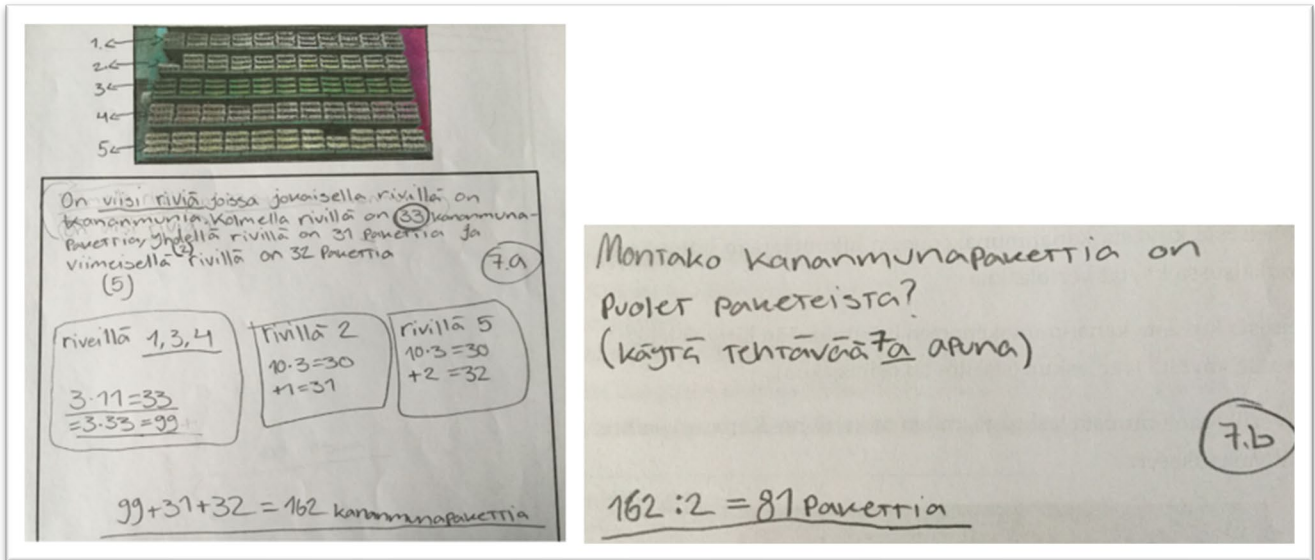 1.
2.
3
4
5
On viisi riviä joissa jokaisella rivillä on
kananmunia. Kolmella rivillä on 33 kananmuna-
pakettia, yhdellä rivillä on 31 pakettia ja
viimeisellä (2) rivillä on 32 pakettia
(5)
7.a
riveillä 1, 3, 4
3·11=33
=3·33=99
rivillä 2
10·3=30
+1=31
rivillä 5
10·3=30
+2=32
99+31+32=162 kananmunapakettia
Montako kananmunapakettia on
puolet paketeista?
(käytä tehtävää 7a apuna)
7.b
162:2=81 pakettia